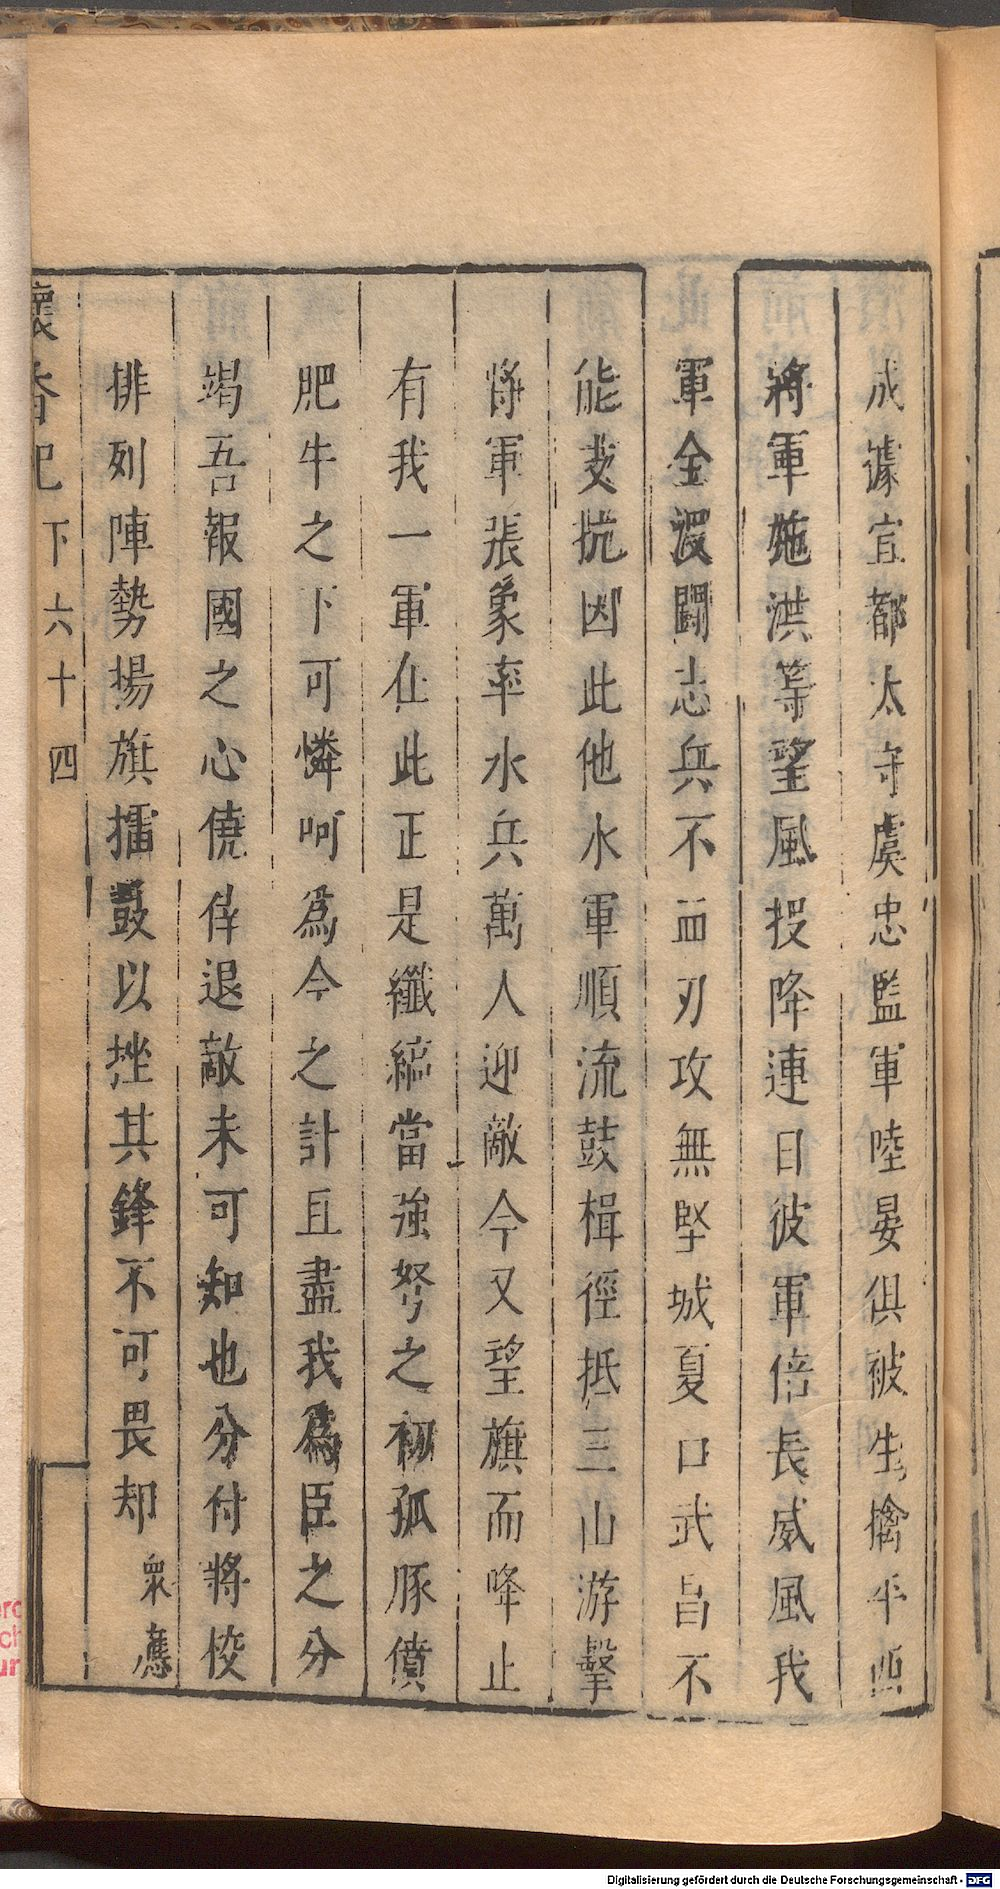 成據宜都太守虞忠監軍陸晏俱被生擒平西
將軍施洪等望風投降連日彼軍倍長威風我
軍全沒鬪志兵不血刃攻無堅城夏口武昌不
能支抗因此他水軍順流鼓楫徑抵三山游擊
將軍張象率水兵萬人迎敵今又望旗而降止
有我一軍在此正是纖縞當強弩之初孤豚僨
肥牛之下可憐呵為今之計且盡我為臣之分
竭吾報國之心僥倖退敵未可知也分付將校
排列陣勢揚旗擂鼓以挫其鋒不可畏却 衆應
懷香記 下 六十四
Digitalisierung gefördert durch die Deutsche Forschungsgemeinschaft - DFG